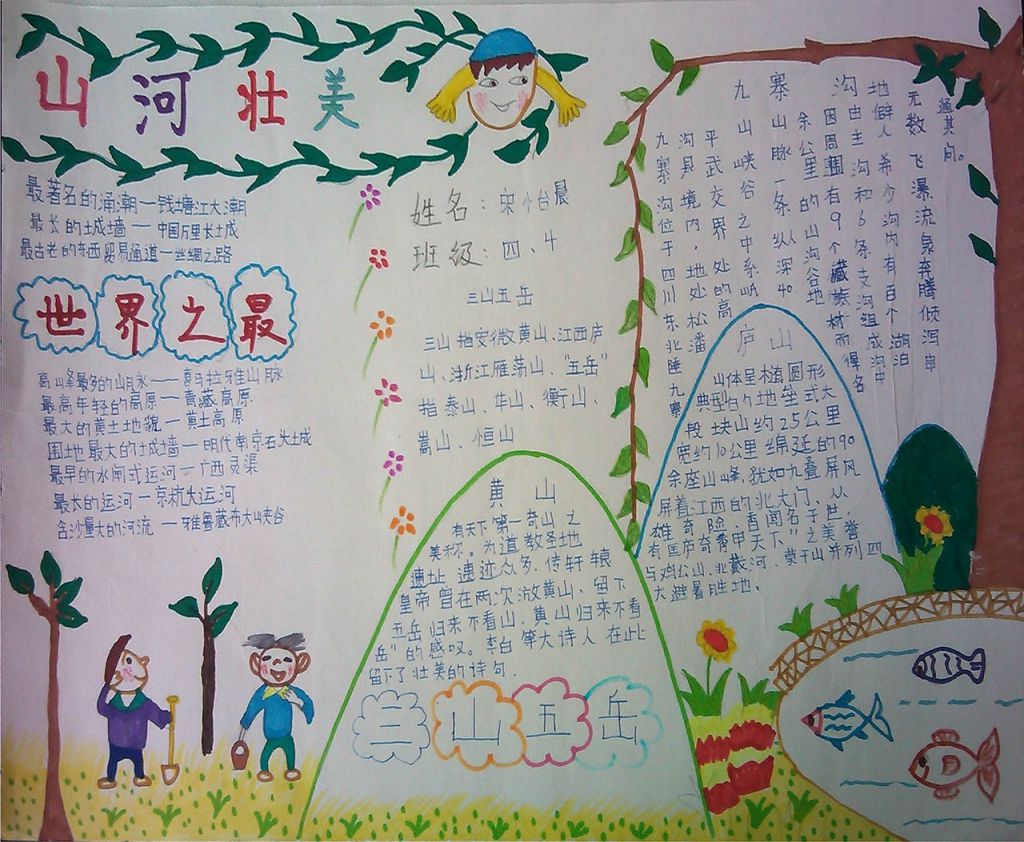 山河壮美
最著名的涌潮—钱塘江大潮
最长的土成墙—中国万里长成
最古老的东西贸易通道—丝绸之路
世界之最
高山峰最多的山脉——喜马拉雅山脉
最高年轻的高原—青藏高原
最大的黄土地貌—黄土高原
围地最大的土成墙—明代南京石头城
最早的水闸式运河—广西灵渠
最大的运河—京杭大运河
含沙量大的河流—雅鲁藏布大山峡谷
姓名：宋小台晨
班级：四、4
三山五岳
三山指安微黄山、江西庐
山、浙江雁荡山、"五岳"
指泰山、华山、衡山、
嵩山、恒山
黄山
有天下第一奇山之
美称。为道教圣地
遗址遗迹众多,传轩辕
皇帝曾在两次游黄山、留下
五岳归来不看山、黄山归来不看
岳"的感叹。李白等大诗人在此
留下了壮美的诗句.
三山五岳
九寨沟
九寨沟位于四川东北陲九寨
沟县境内,地处松潘
平武交界处的高
山峡谷之中系岷
山脉一条纵深40.
余公里的山沟谷地
因周围有9个藏族村而得名
沟由主沟和6条支沟组成沟中
地僻人希少沟内有百个湖泊
无数飞瀑流泉奔腾倾泻串
通其间。
庐山
山体呈椭圆形
典型的地垒式大
段块山约25公里
宽约10公里绵延的90
余座山峰,犹如九叠屏风
屏着江西的北大门、从
雄奇险,秀闻名于世,
有匡庐奇秀甲天下"之美誉
与鸡公山、北戴河、莫干山并列四
大避暑胜地.